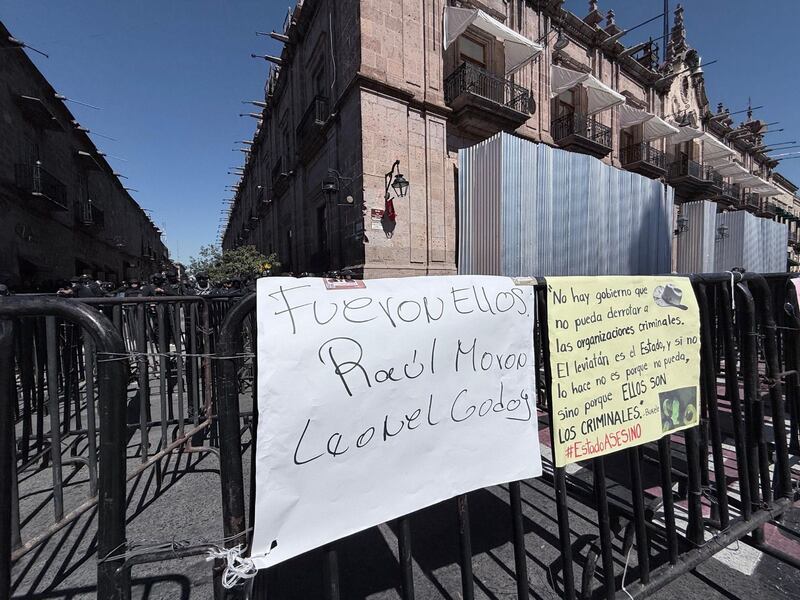 Fueron Ellos.
Raúl Moron
Leonel Godoy
"No hay gobierno que
no pueda derrotar a
las organizaciones criminales.
El leviatán es el Estado, y si no
lo hace no es porque no pueda,
sino porque ELLOS SON
LOS CRIMINALES".
#EstadoASESINO